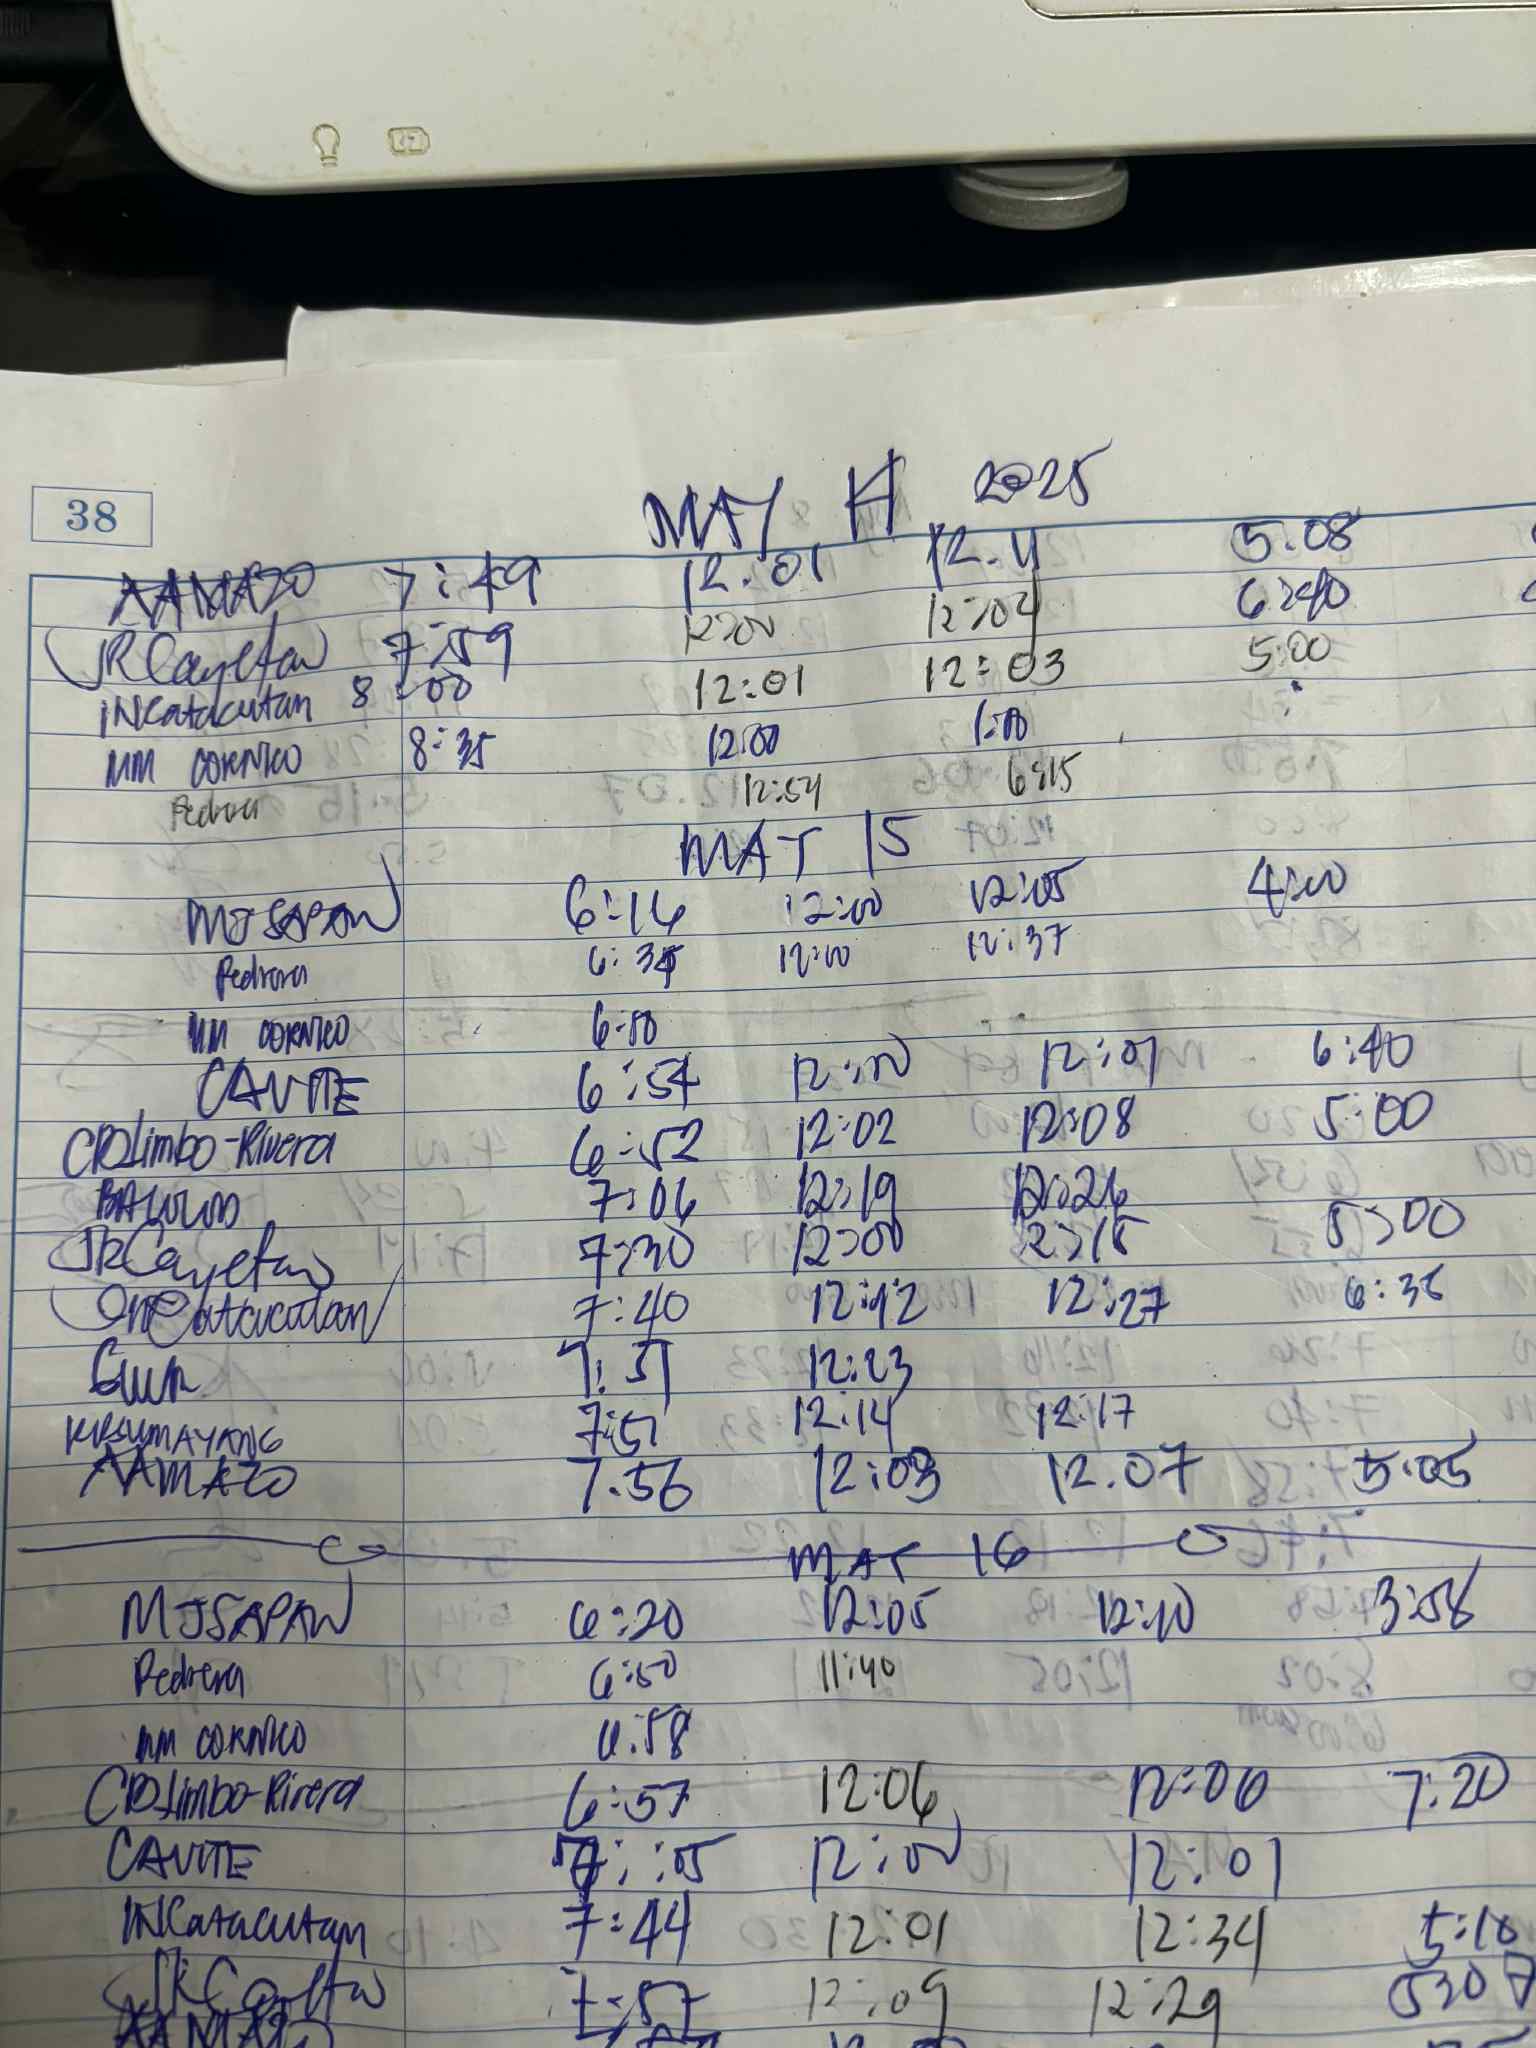 38
MAY 14 2025
AAMAZO 7:49 12.01 12.11 5.08
JRCayetano 7:59 12:00 12:04 6:40
INCatacutan 8:00 12:01 12:03 5:00
MM CORNICO 8:35 12:00 1:00
Pedrera 12:54 6:15
MAY 15
MJSAPAN 6:14 12:00 12:05 4:00
Pedrera 6:35 12:00 12:37
MM CORNICO 6:50
CAVITE 6:54 12:00 12:01 6:40
CRDLimbo-Rivera 6:52 12:02 12:08 5:00
7:06 12:19 12:26
JRCayetano 7:30 12:00 12:15 5:00
INCatacutan 7:40 12:12 12:27 6:35
7:51 12:23
KRSUMAYANG 7:51 12:14 12:17
AAMAZO 7.56 12:03 12.07 5:05
MAY 16
MJSAPAN 6:20 12:05 12:10 3:58
Pedrera 6:50 11:40
MM CORNICO 6:58
CRDLimbo-Rivera 6:57 12:06 12:06 7:20
CAVITE 7:05 12:00 12:01
INCatacutan 7:44 12:01 12:34 5:10
JRCayetano 7:57 12:09 12:29 530
AAMAZO